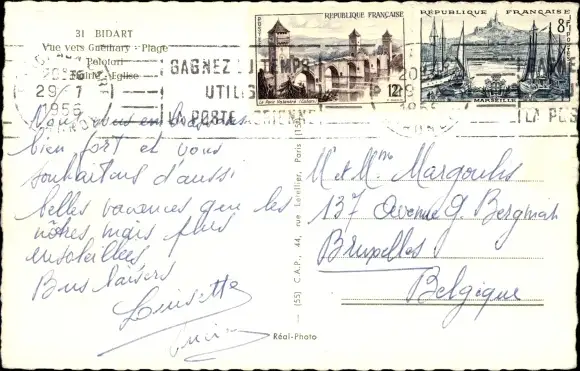 31 BIDART
Vue vers Guéthary - Plage
Pelotari
Mairie - Eglise
20H30
29-7
1956
GAGNEZ DU TEMPS
UTILIS
LA POSTE AERIENNE
REPUBLIQUE FRANÇAISE
POSTES
12F
Le Pont Valentré (Cahors)
RÉPUBLIQUE FRANÇAISE
8F
POSTES
MARSEILLE
Nous vous embrassons
bien fort et vous
souhaitons d'aussi
belles vacances que les
nôtres, mais plus
ensoleillées.
Bons baisers
Louisette
M et Mme Margoulis
137 Avenue G. Bergman
Bruxelles
Belgique
(55) C.A.P., 44, rue Letellier, Paris (15e)
Réal-Photo